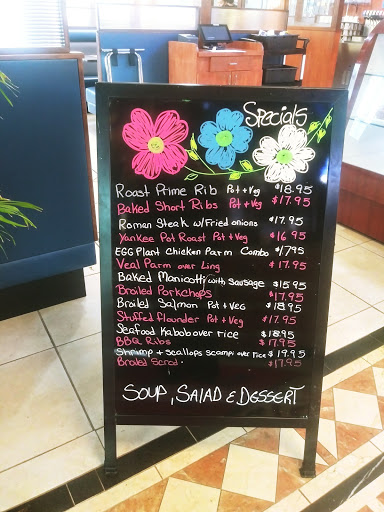 Specials
Roast Prime Rib Pot + Veg $18.95
Baked Short Ribs Pot + Veg $17.95
Roman Steak w/Fried onions $17.95
Yankee Pot Roast Pot + Veg $16.95
EGG Plant Chicken Parm Combo $17.95
Veal Parm over Ling $17.95
Baked Manicotti with Sausage $15.95
Broiled Porkchops $17.95
Broiled Salmon Pot + Veg $18.95
Stuffed Flounder Pot + Veg $17.95
Seafood Kabob over rice $18.95
BBQ Ribs $17.95
Shrimp + Scallops Scampi over rice $19.95
Broiled Scrod $17.95
SOUP, SALAD & DESSERT